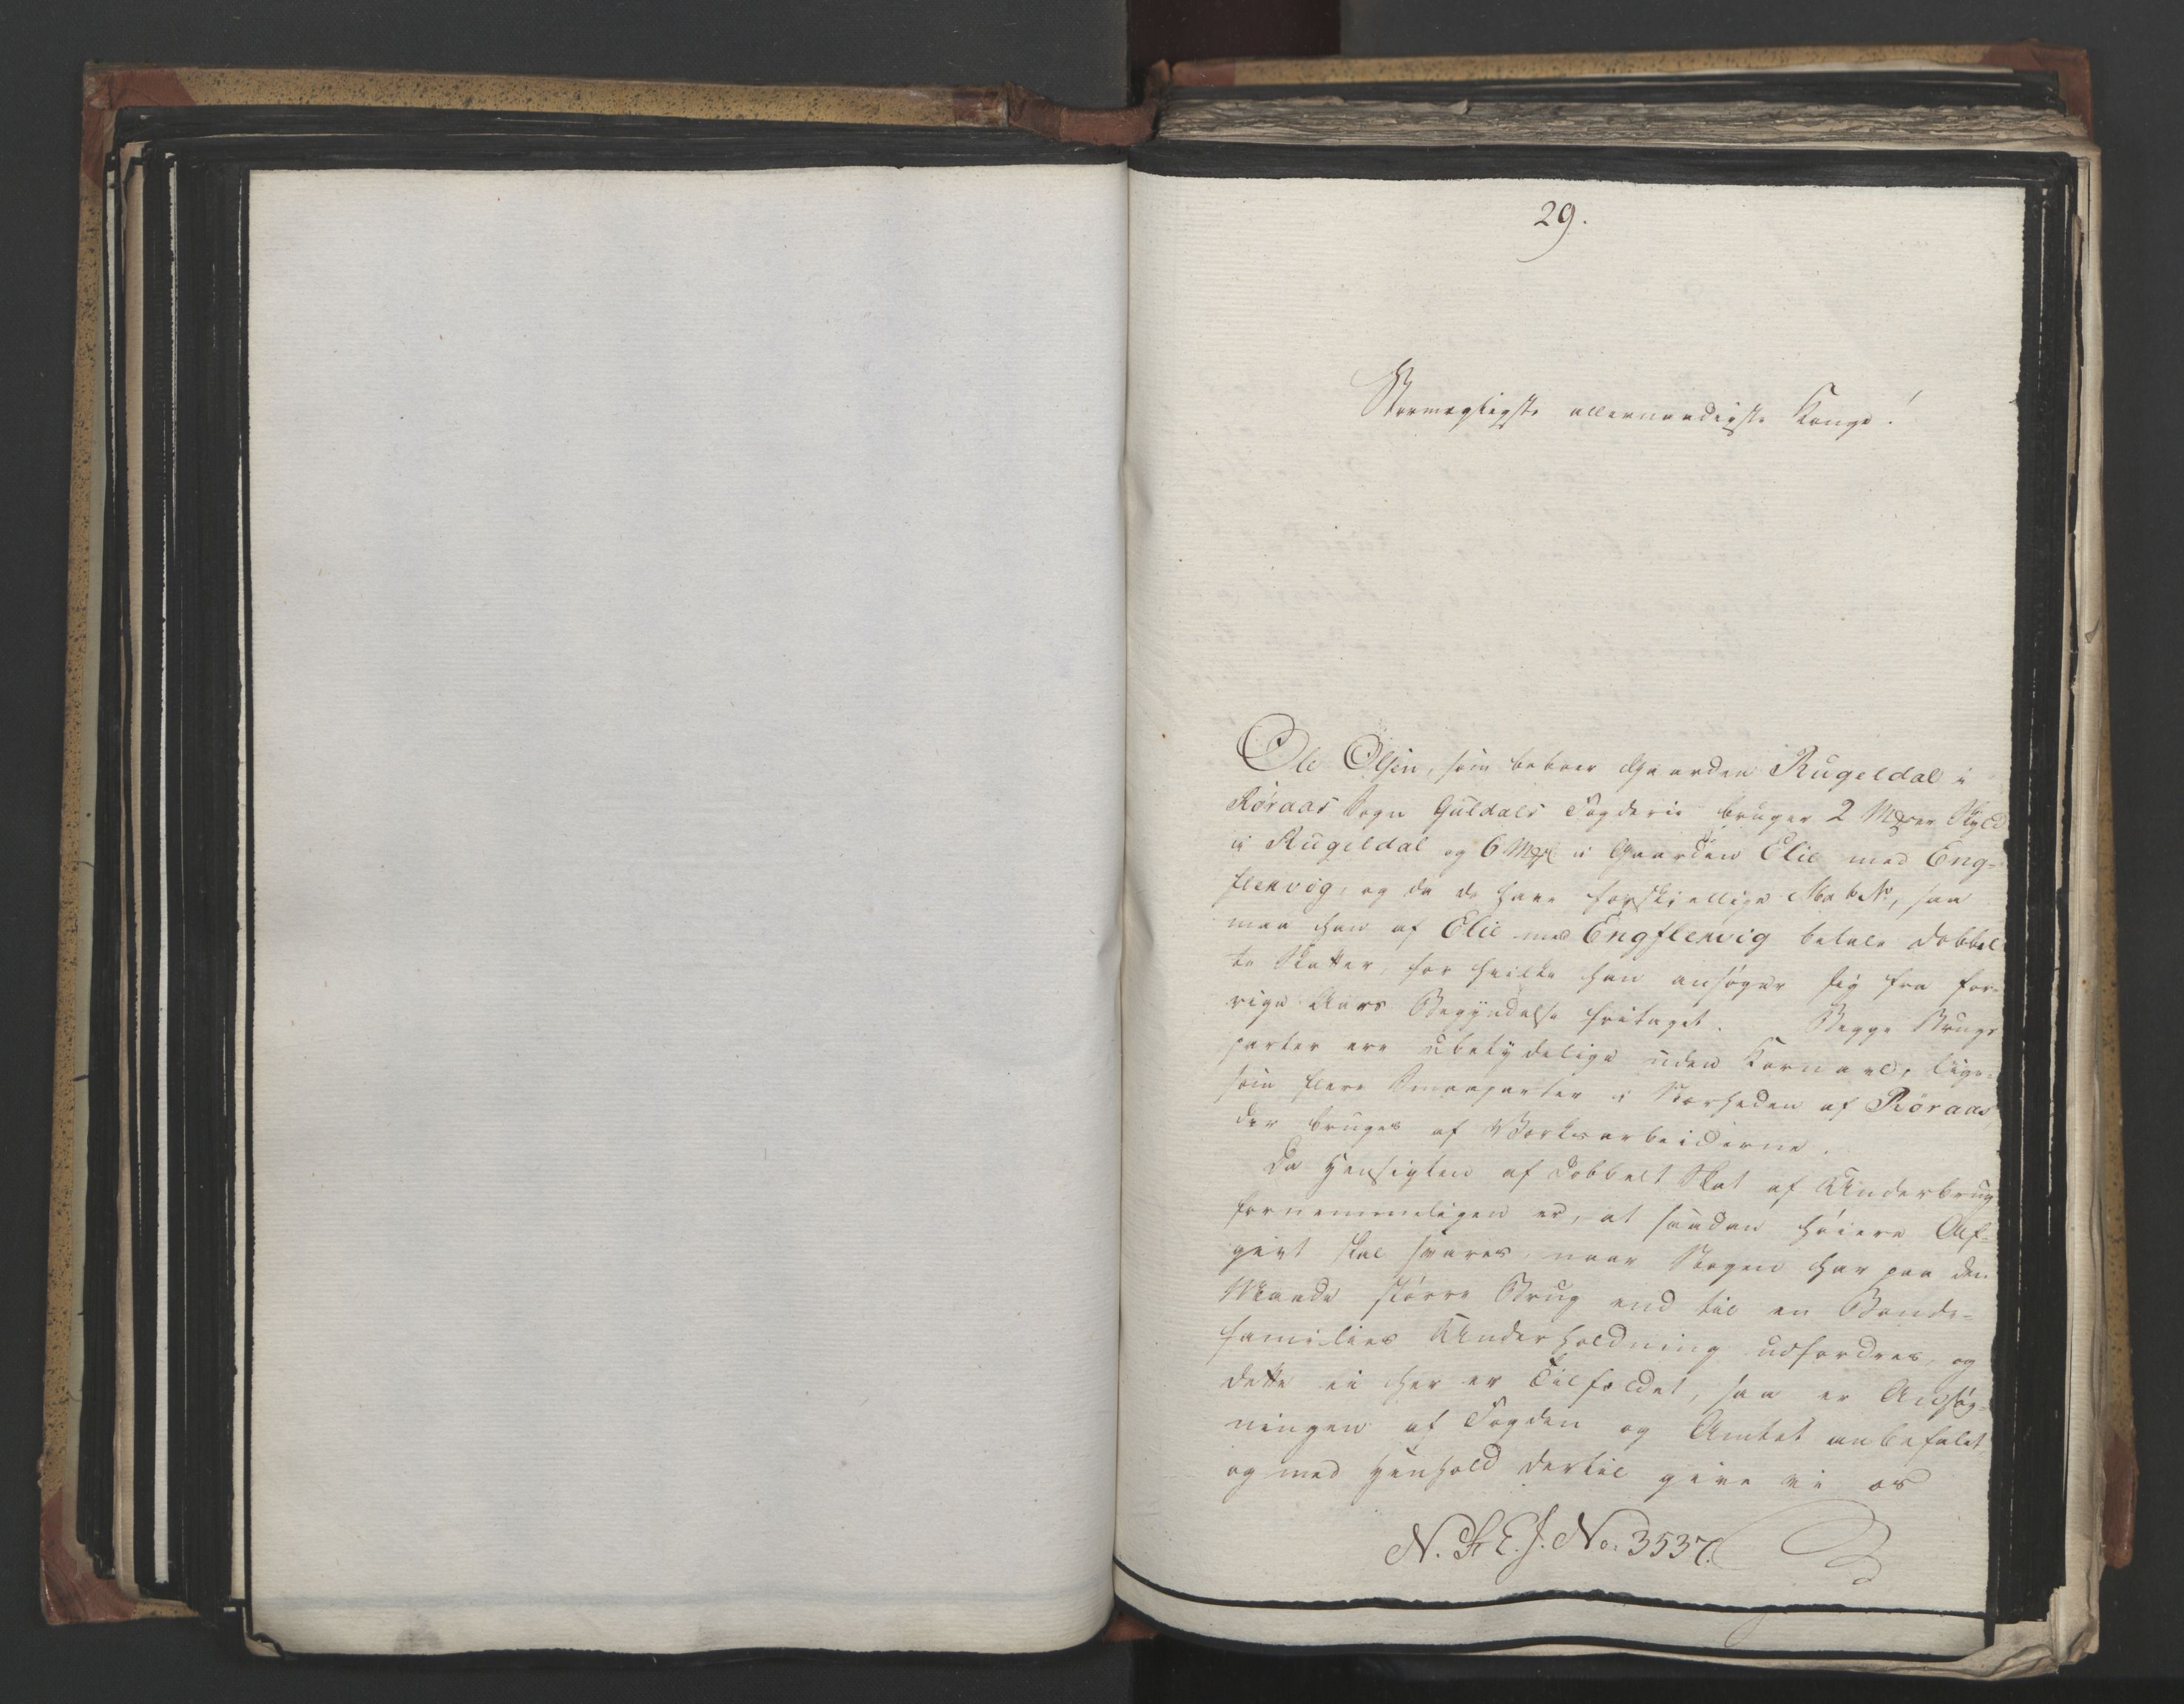 29.
Stormægtigste allernaadigste Konge!
Ole Olsen, som beboer Gaarden Rugeldal i
Röraas Sogn Guldals Fogderie bruger 2 Mrker Skyld
i Rugeldal og 6 Mrk i Gaarden Elie med Eng-
flenvig, og da de have forskiellige No, saa
maa han af Elie med Engflenvig betale dobbel
te Skatter, for hvilke han ansøger sig fra for-
rige Aars Begyndelse fritaget. Begge Brugs
parter ere ubetydelige uden Kornavl, lige-
som flere Smaaparter i Nærheden af Röraas,
der bruges af Værksarbeiderne.
Da Hensigten af dobbelt Skat af Underbrug
fornemmeligen er, at saadan høiere Af-
givt skal svares, naar Nogen har paa den
Maade større Brug end til en Bonde-
families Underholdning udfordres, og
dette ei her er Tilfældet, saa er Ansøg-
ningen af Fogden og Amtet anbefalet
og med Henhold dertil give vi os
N. E. J. No. 3537.